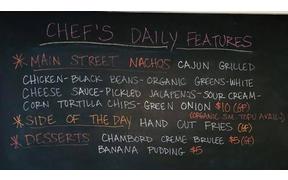 CHEF'S DAILY FEATURES
* MAIN STREET NACHOS CAJUN GRILLED
CHICKEN-BLACK BEANS-ORGANIC GREENS-WHITE
CHEESE SAUCE-PICKLED JALAPENOS-SOUR CREAM-
CORN TORTILLA CHIPS-GREEN ONION $10 (GF)
(ORGANIC SM. TOFU AVAIL.)
* SIDE OF THE DAY HAND CUT FRIES (GF)
* DESSERTS CHAMBORD CREME BRULEE $5 (GF)
BANANA PUDDING $5